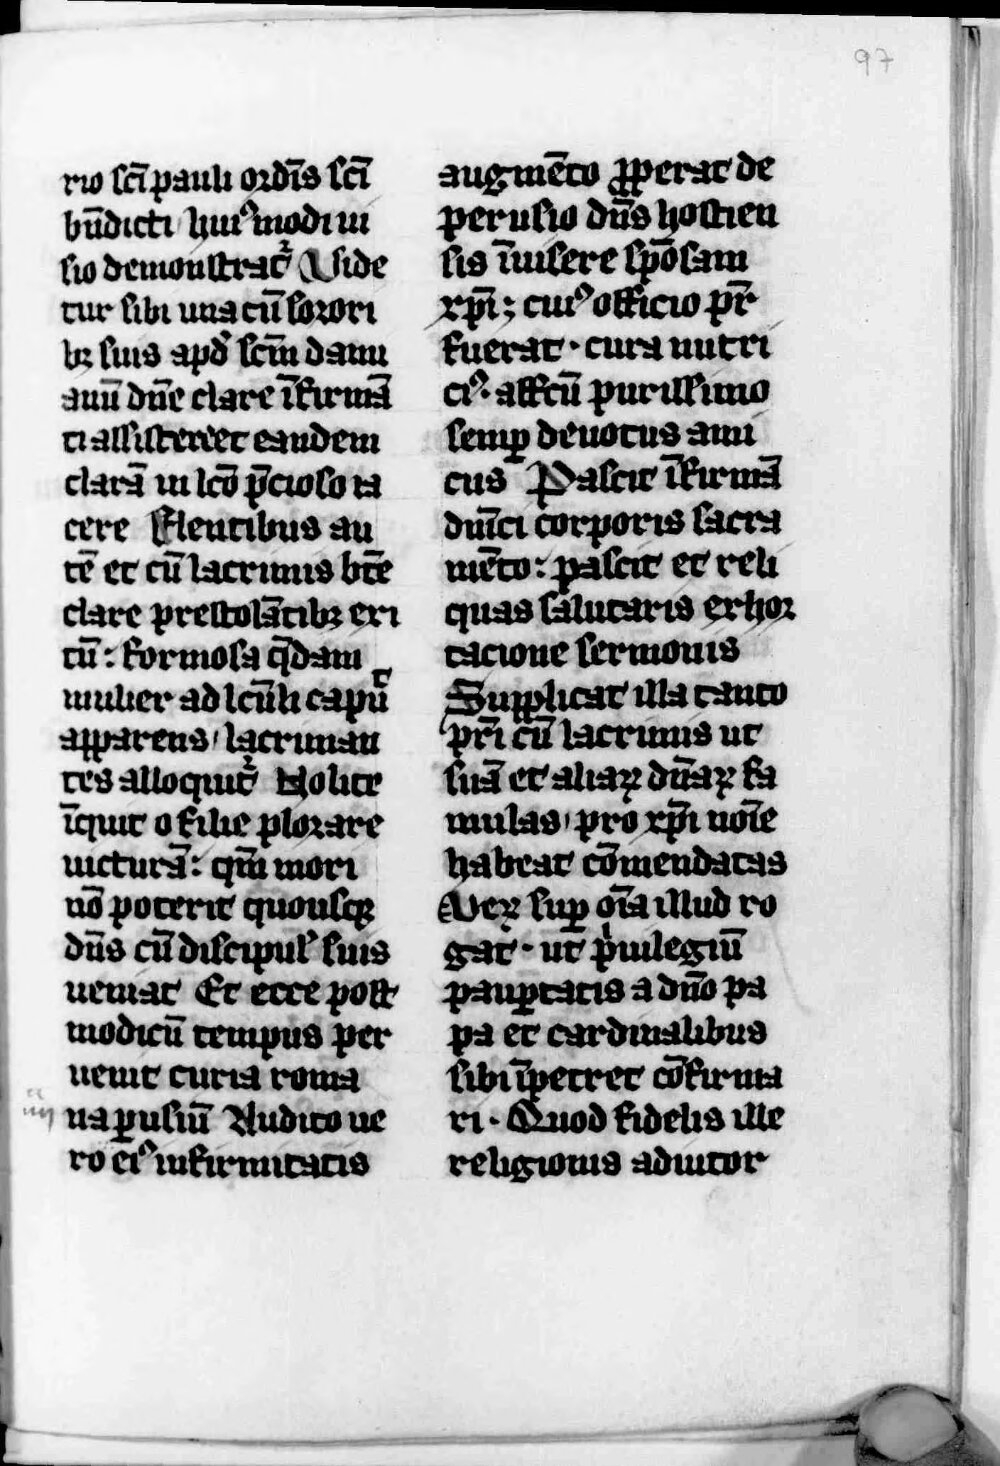 97
rio scī pauli ordīs scī
bn̄dicti huiꝰmodi ui
sio demonstrat᷑ Uide
tur sibi una cū sorori
bꝫ suis apd̄ scm̄ dami
anū dn̄e clare īfirmā
ti assisteret et eandem
clarā in lcō p̄cioso ia
cere Flentibus au
tē et cū lacrimis btē
clare prestolātibꝫ exi
tū: formosa q̄dam
mulier ad lcūli capud
apparens, lacriman
tes alloquit᷑ Nolite
īquit o filie plorare
uicturā: qm̄ mori
nō poterit quousqꝫ
dn̄s cū discipul' suis
ueniat Et ecce post
modicū tempus per
uenit curia roma
iiij
na ꝑusiū Audito ue
ro eiꝰ infirmitatis
augmēto ꝓperat de
perusio dn̄s hostien
sis īuisere spōsam
xp̄i; cuiꝰ officio pr̄
fuerat· cura nutri
ciꝰ· affcū purissimo
semꝑ deuotus ami
cus Pascit īfirmā
dn̄ici corporis sacra
mēto: pascit et reli
quas salutaris exhor
tacione sermonis
Supplicat illa tanto
pr̄i cū lacrimis ut
suā et aliaꝝ dn̄aꝝ fa
mulas, pro xp̄i noīe
habeat cōmendatas
Veꝝ suꝑ oīa illud ro
gat· ut pⁱuilegiū
pauꝑtatis a dn̄o pa
pa et cardinalibus
sibi īpetret cōfirma
ri· Quod fidelis ille
religionis adiutor